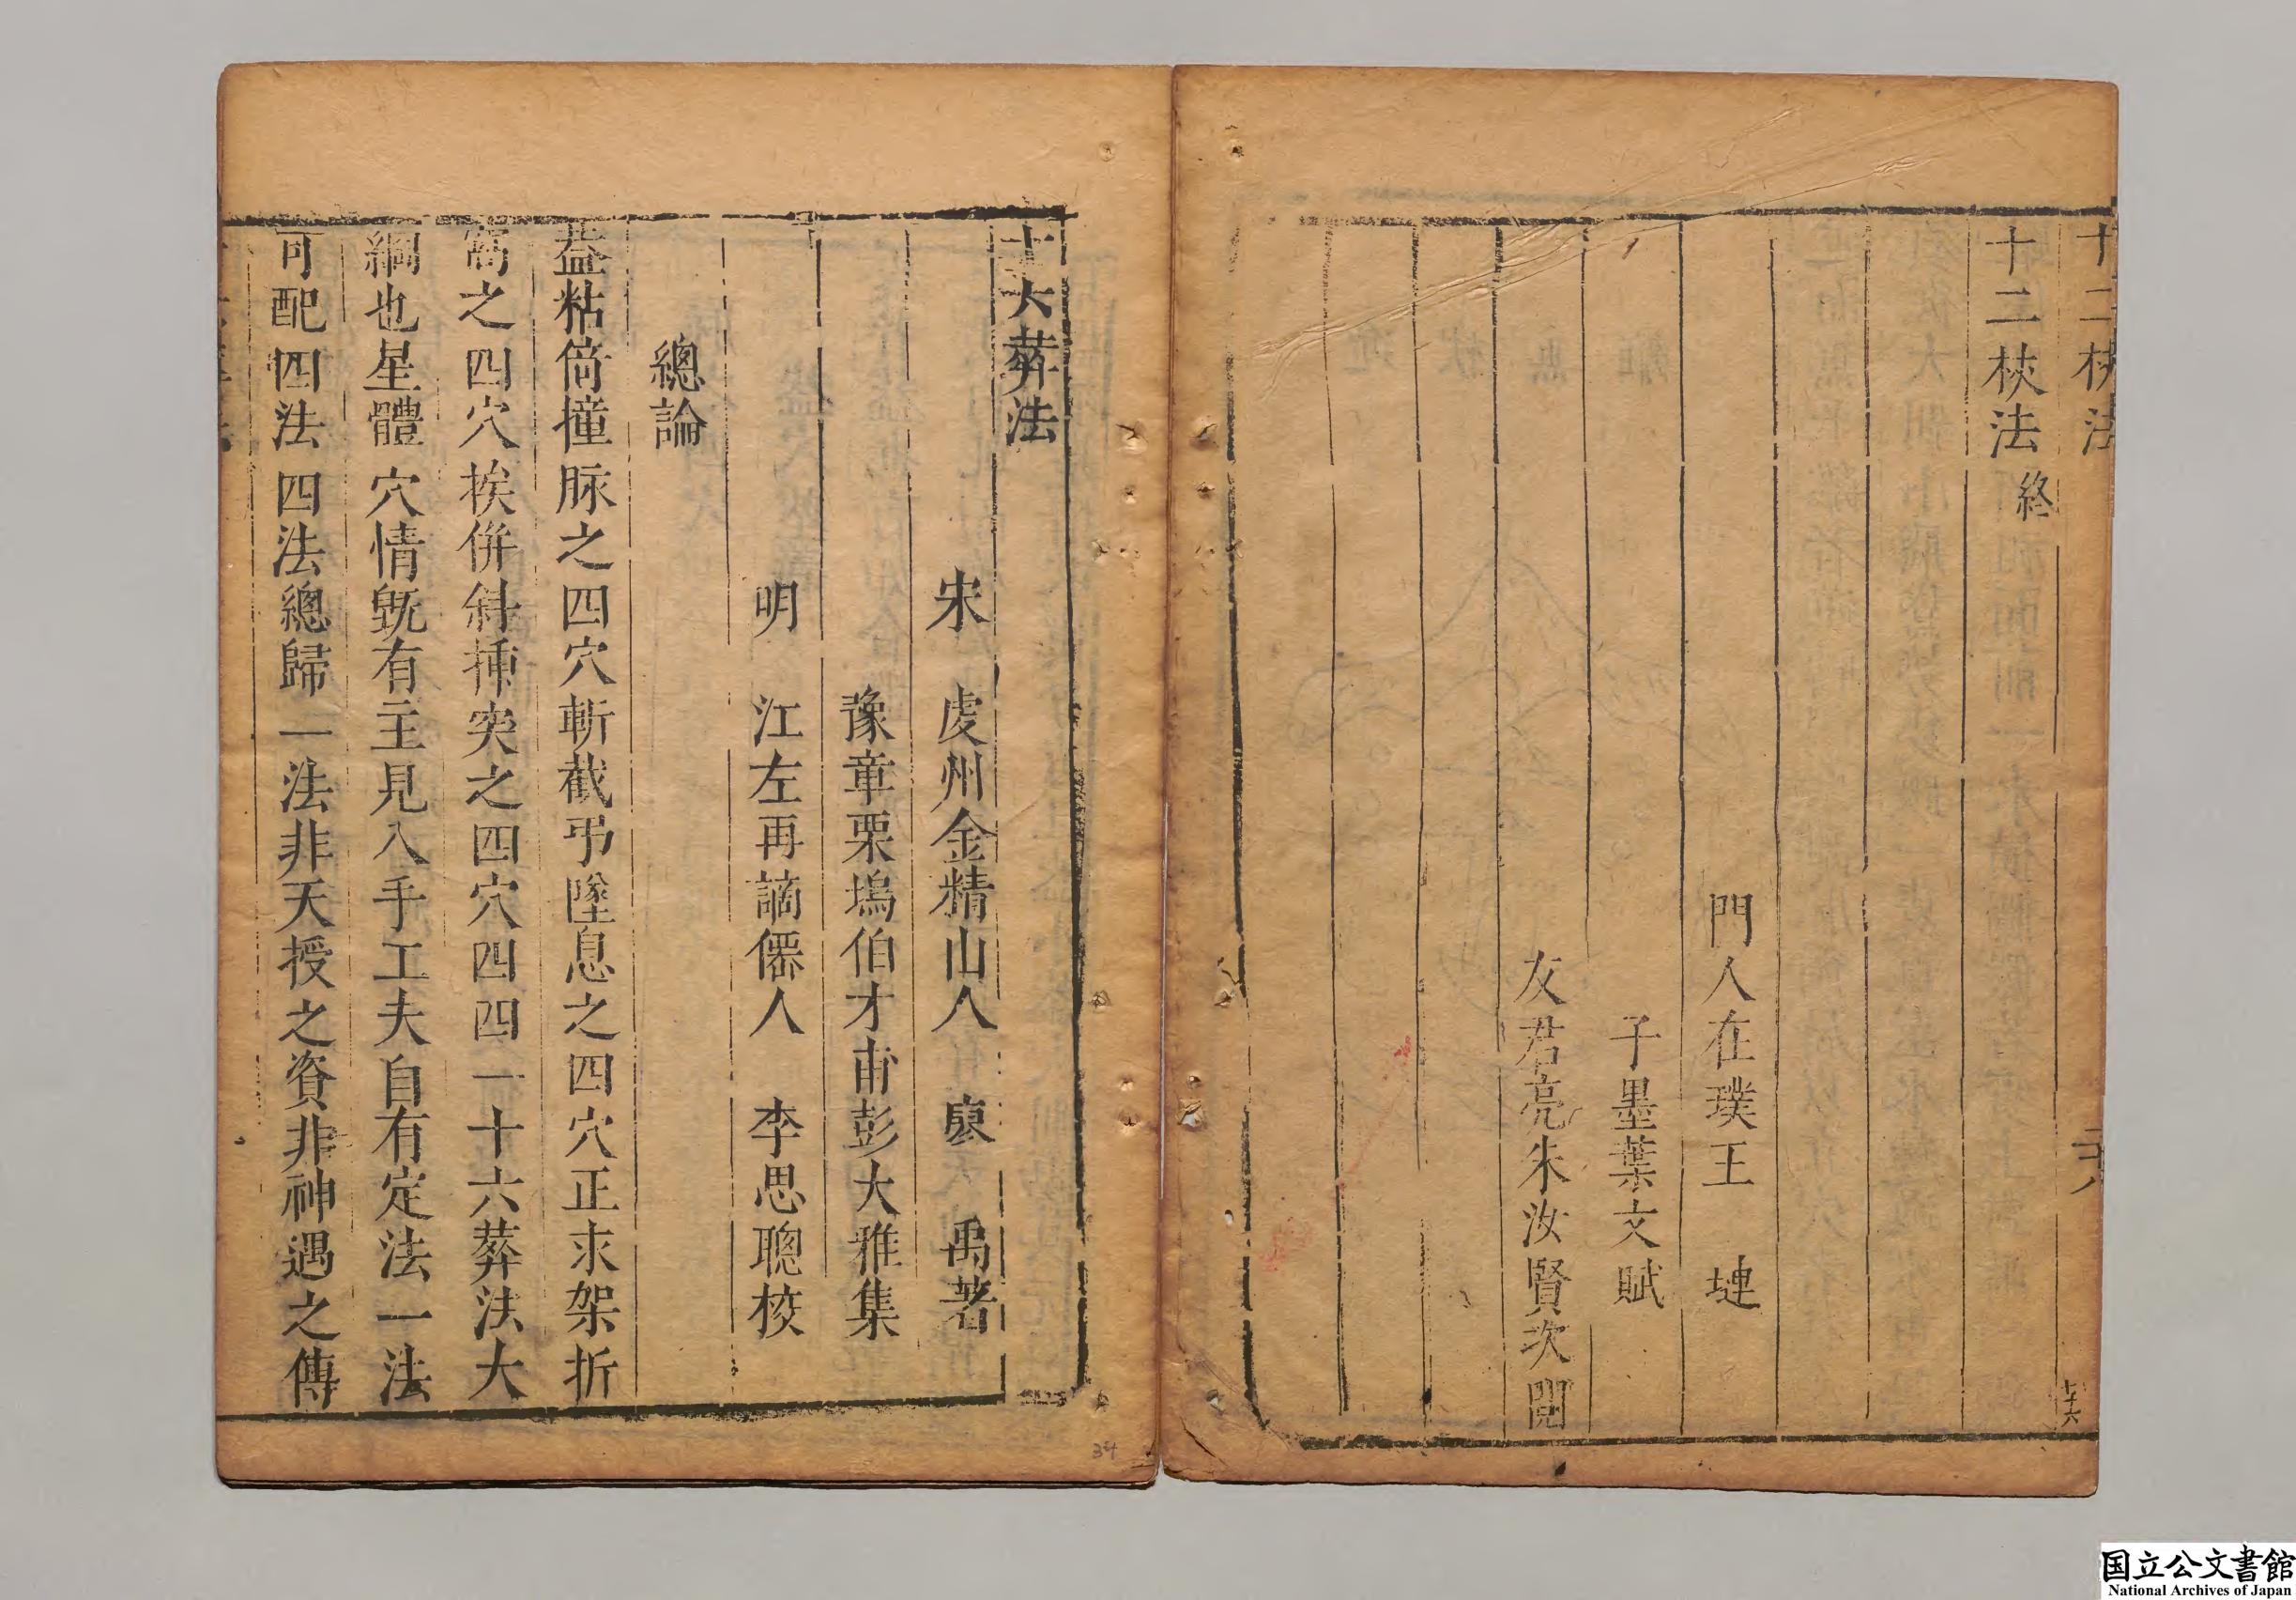 十二杖法
十二杖法 終
門人在璞王 㙻
子墨葉文賦
友君亮朱汝賢次閱
十六葬法
宋 虔州金精山人 廖 禹著
豫章栗塢伯才甫彭大雅集
明 江左再謫僊人 李思聰校
總論
葢粘倚撞脉之四穴斬截弔墜息之四穴正求架折
窩之四穴挨併斜揷突之四穴四四一十六葬法大
綱也星體穴情旣有主見入手工夫自有定法一法
可配四法四法總歸一法非天授之資非神遇之傳
34
国立公文書館
National Archives of Japan